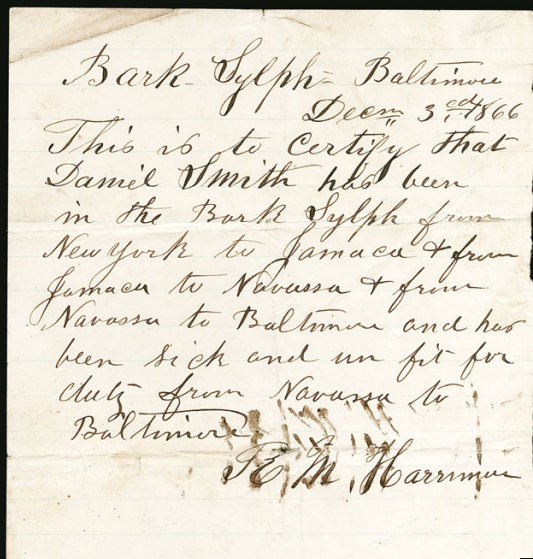 Bark Sylph - Baltimore
Decm 3rd, 1866
This is to certify that
Daniel Smith has been
in the Bark Sylph from
New York to Jamaca & from
Jamaca to Navassa & from
Navassa to Baltimore and has
been sick and un fit for
duty from Navassa to
Baltimore
R M, Harriman